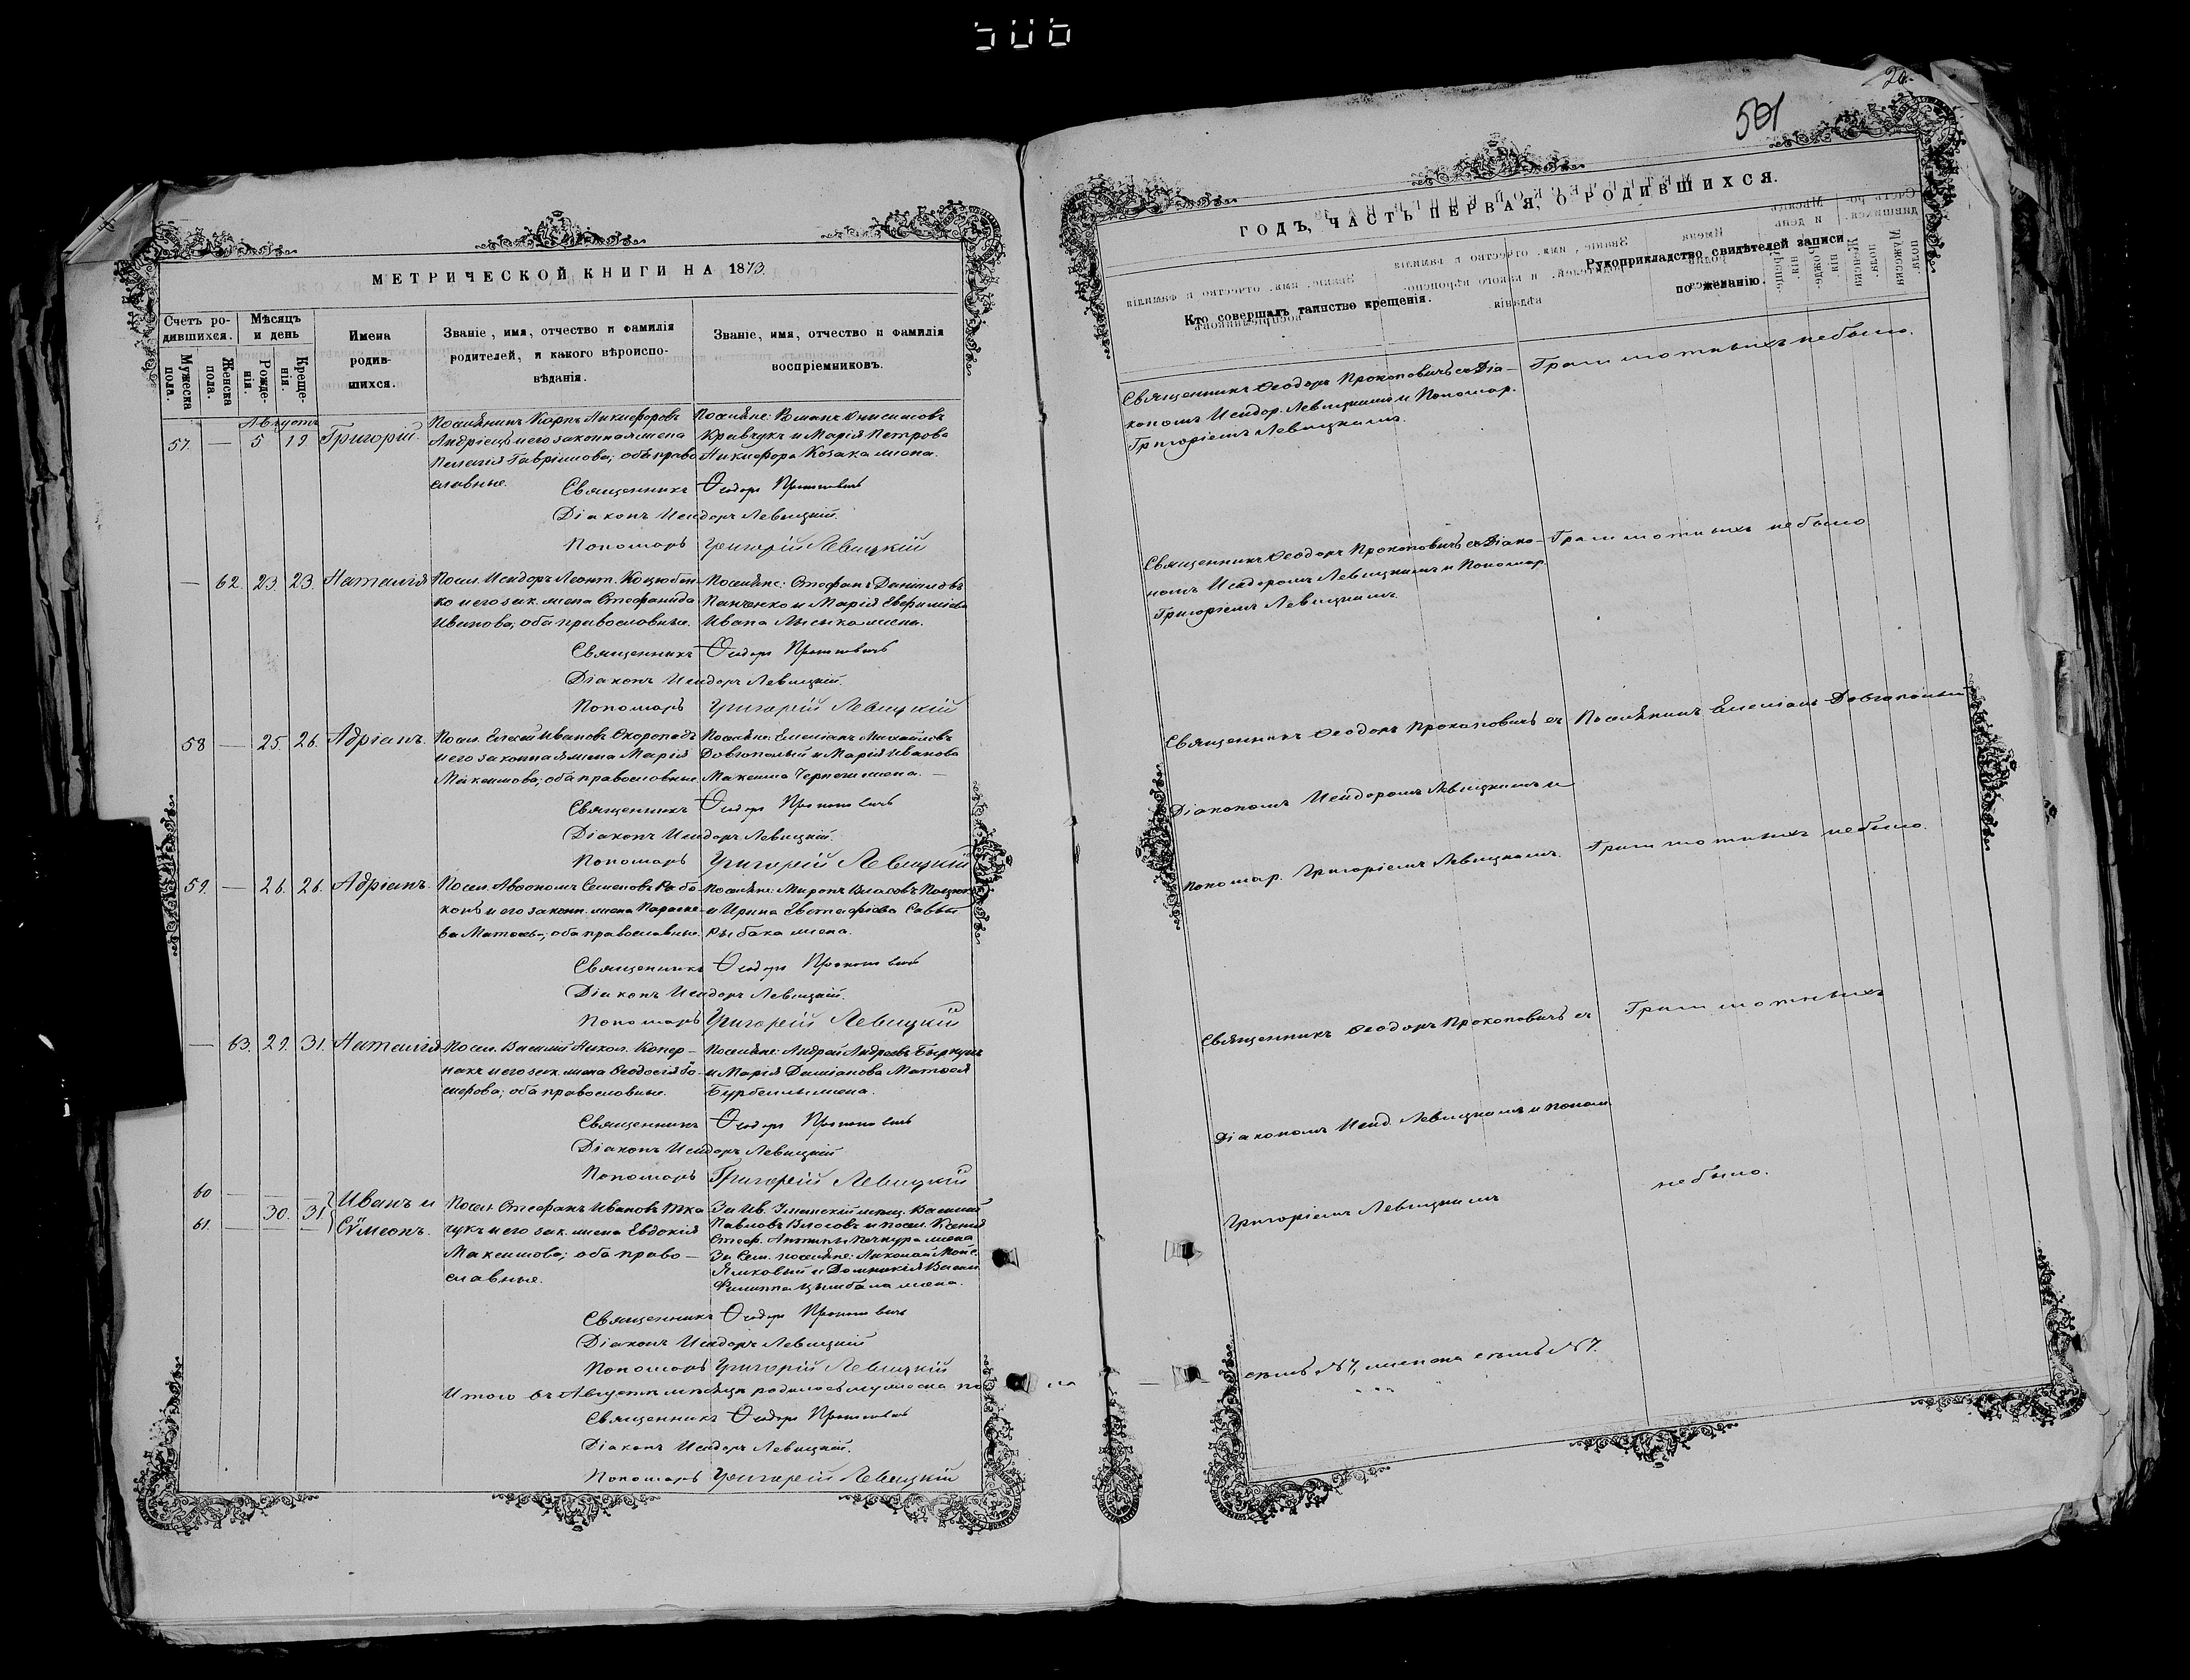 506
20.
501
МЕТРИЧЕСКОЙ КНИГИ НА 1873.
Счетъ ро-
дившихся.
Мужеска пола.
Женска пола.
Мѣсяцъ
и день
Рожде-
нія.
Креще-
нія.
Имена
родив-
шихся.
Званіе, имя, отчество и фамилія
родителей, и какого вѣроиспо-
вѣданія.
Званіе, имя, отчество и фамилія
воспріемниковъ.
Августъ
57. — 5 19 Григорій.
Поселянинъ Карпъ Никифоровъ
и его законная жена
Пелагія Гавріилова; оба право
славные.
Поселяне: Романъ Онисимовъ
Кравчукъ и Марія Петрова
Никифора Козака жена.
Священникъ Ѳеодоръ Прокоповичъ
Діаконъ Исидоръ Левицкій.
Пономарь Григорій Левицкій
— 62. 23. 23. Наталія
Посел. Исидоръ Леонт. Коцюбен-
ко и его зак. жена Стефанида
Иванова; оба православные.
Поселяне: Стефанъ Даніиловъ
Панченко и Марія Евфиміева
Ивана Лысенка жена.
Священникъ Ѳеодоръ Прокоповичъ
Діаконъ Исидоръ Левицкій.
Пономарь Григорій Левицкій
58 — 25. 26. Адріанъ.
Посел. Елисей Ивановъ Скороподъ
и его законная жена Марія
Максимова; оба православные.
Поселяне: Емеліанъ Михайловъ
Довгополый и Марія Иванова
Максима жена. —
Священникъ Ѳеодоръ Прокоповичъ
Діаконъ Исидоръ Левицкій.
Пономарь Григорій Левицкій
59. — 26. 26. Адріанъ.
Посел. Автономъ Семеновъ Рабо-
конь и его законн. жена Параске-
ва оба православные.
Поселяне: Миронъ Власовъ
и Ирина Евстафіева Саввы
Рыбака жена.
Священникъ Ѳеодоръ Прокоповичъ
Діаконъ Исидоръ Левицкій.
Пономарь Григорій Левицкій
— 63. 29. 31. Наталія
Посел. Василій Никол. Копер-
накъ и его зак. жена Ѳеодосія
оба православные.
Поселяне: Андрей Андреевъ
и Марія Даміанова Матѳея
Бурбелы жена.
Священникъ Ѳеодоръ Прокоповичъ
Діаконъ Исидоръ Левицкій
Пономарь Григорій Левицкій
60 — 30. 31 Иванъ и
61. — Сѵмеонъ.
Посел. Стефанъ Ивановъ Тка
чукъ и его зак. жена Евдокія
Максимова; оба право —
славные.
За Ив. мѣщ. Василій
Павловъ Власовъ и посел. Ксенія
Стеф. Антипы жена
За Сем. поселяне: Николай
и Домникія
Филиппа Цымбала жена.
Священникъ Ѳеодоръ Прокоповичъ
Діаконъ Исидоръ Левицкій
Пономарь Григорій Левицкій
Итого въ Августѣ мѣсяцѣ родилось мужеска по
Священникъ Ѳеодоръ Прокоповичъ
Діаконъ Исидоръ Левицкій.
Пономарь Григорій Левицкій
ГОДЪ, ЧАСТЬ ПЕРВАЯ, О РОДИВШИХСЯ.
Кто совершалъ таинство крещенія.
Рукоприкладство свидѣтелей записи
по желанію.
Священникъ Ѳеодоръ Прокоповичъ съ Діа-
кономъ Исидор. Левицкимъ и Пономар.
Григоріемъ Левицкимъ.
Грамотныхъ небыло.
Священникъ Ѳеодоръ Прокоповичъ съ Діако-
номъ Исидоромъ Левицкимъ и Пономар
Григоріемъ Левицкимъ.
Грамотныхъ небыло
Священникъ Ѳеодоръ Прокоповичъ съ
Поселянинъ Емеліанъ Довгополый
Діакономъ Исидоромъ Левицкимъ и
Пономар. Григоріемъ Левицкимъ.
Грамотныхъ небыло.
Священникъ Ѳеодоръ Прокоповичъ съ
Грамотныхъ
Діакономъ Исид. Левицкимъ и Поном
Григоріемъ Левицкимъ
небыло.
№7, женска №7.